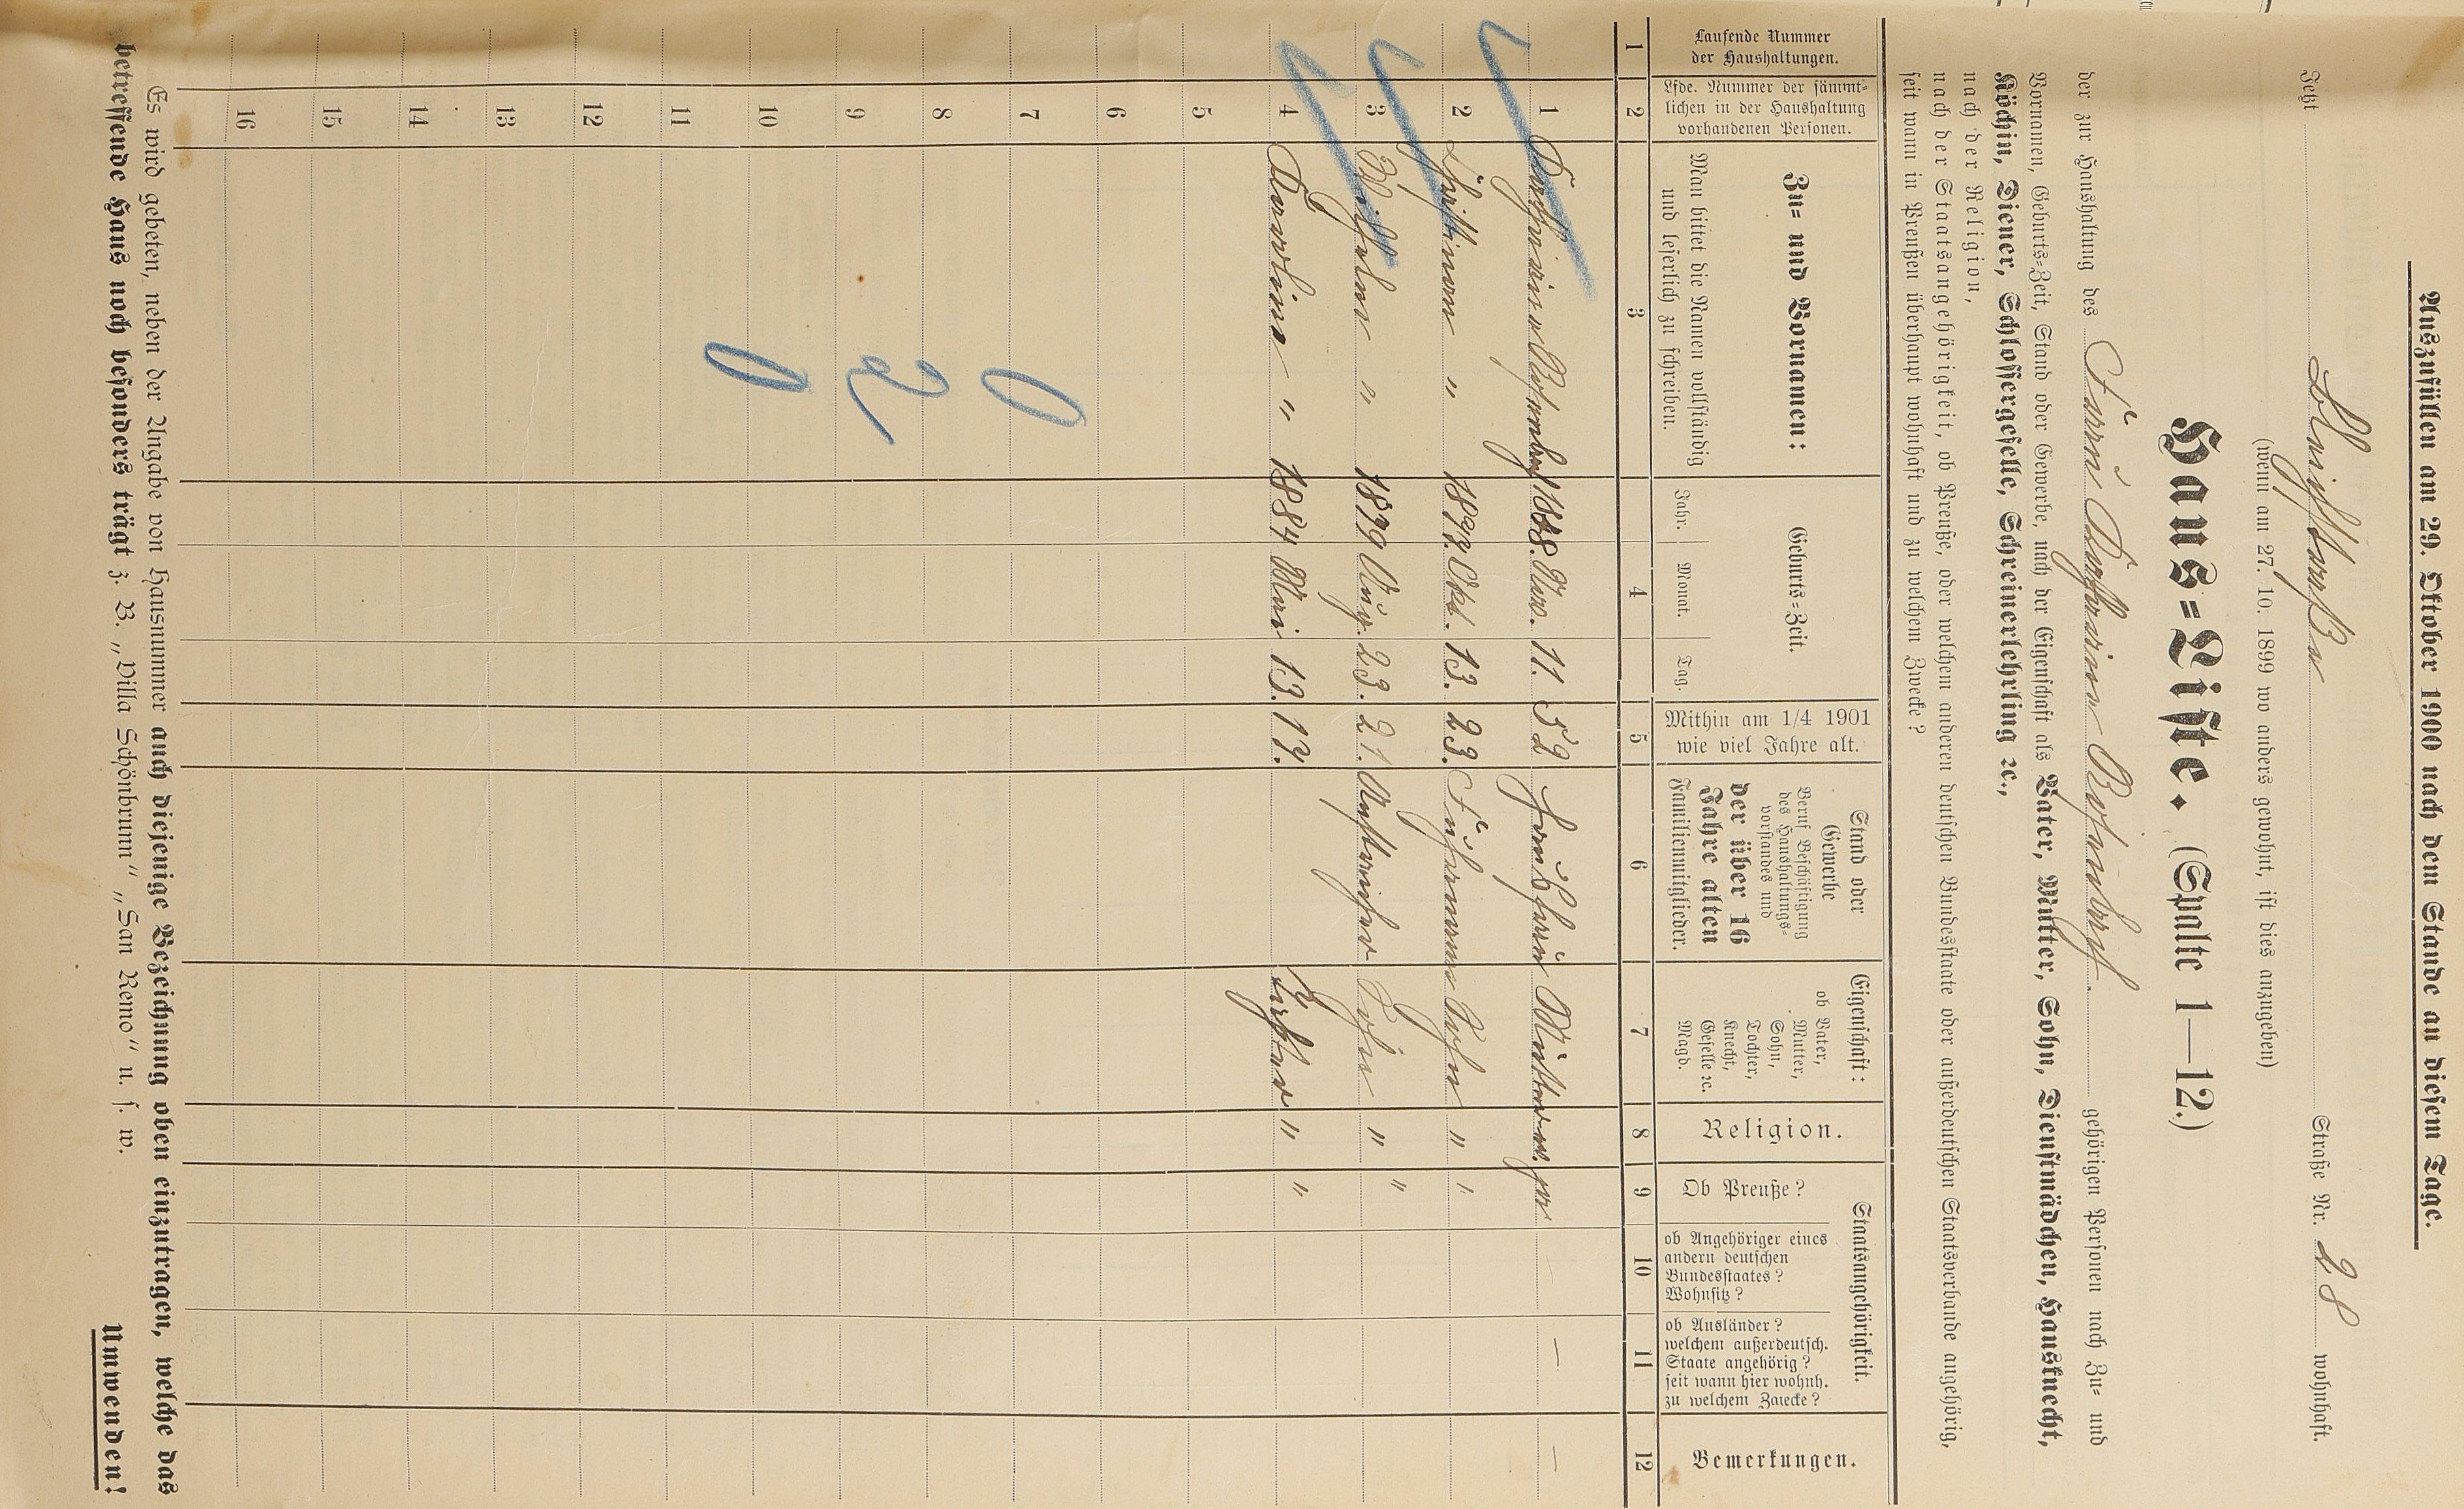 Auszufüllen am 29. Oktober 1900 nach dem Stande an diesem Tage.
Jetzt Straße Nr. 28 wohnhaft.
(wenn am 27. 10. 1899 wo anders gewohnt, ist dies anzugeben)
Haus-Liste. (Spalte 1—12.)
der zur Haushaltung des gehörigen Personen nach Zu- und
Vornamen, Geburts-Zeit, Stand oder Gewerbe, nach der Eigenschaft als Vater, Mutter, Sohn, Dienstmädchen, Hausknecht,
Köchin, Diener, Schlossergeselle, Schreinerlehrling ꝛc.,
nach der Religion,
nach der Staatsangehörigkeit, ob Preuße, oder welchem anderen deutschen Bundesstaate oder außerdeutschen Staatsverbande angehörig,
seit wann in Preußen überhaupt wohnhaft und zu welchem Zwecke?
Laufende Nummer
der Haushaltungen.
Lfde. Nummer der sämmt-
lichen in der Haushaltung
vorhandenen Personen.
Zu- und Vornamen:
Man bittet die Namen vollständig
und leserlich zu schreiben.
Geburts-Zeit.
Jahr. Monat. Tag.
Mithin am 1/4 1901
wie viel Jahre alt.
Stand oder
Gewerbe
Beruf Beschäftigung
des Haushaltungs-
vorstandes und
der über 16
Jahre alten
Familienmitglieder.
Eigenschaft:
ob Vater,
Mutter,
Sohn,
Tochter,
Knecht,
Geselle ꝛc.
Magd.
Religion.
Staatsangehörigkeit.
Ob Preuße?
ob Angehöriger eines
andern deutschen
Bundesstaates?
Wohnsitz?
ob Ausländer?
welchem außerdeutsch.
Staate angehörig?
seit wann hier wohnh.
zu welchem Zwecke?
Bemerkungen.
1 2 3 4 5 6 7 8 9 10 11 12
1 11. 52 Mutter ja — — —
2 " Okt. 13. 23. Fuhrmann Sohn " "
3 " 1879 Aug. 23. 21. Anstreicher Sohn " "
4 " 1884 Mai 13. Tochter " "
5
6
7
8
9
10
11
12
13
14
15
16
0
2
0
Es wird gebeten, neben der Angabe von Hausnummer auch diejenige Bezeichnung oben einzutragen, welche das
betreffende Haus noch besonders trägt z. B. „Villa Schönbrunn“ „San Remo“ u. s. w.
Umwenden!